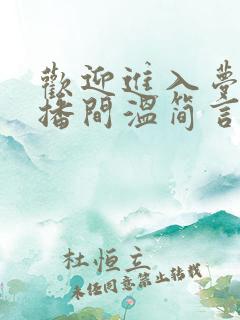 歡迎進入夢
播間溫简言
杜恒立
未经同意禁止转载